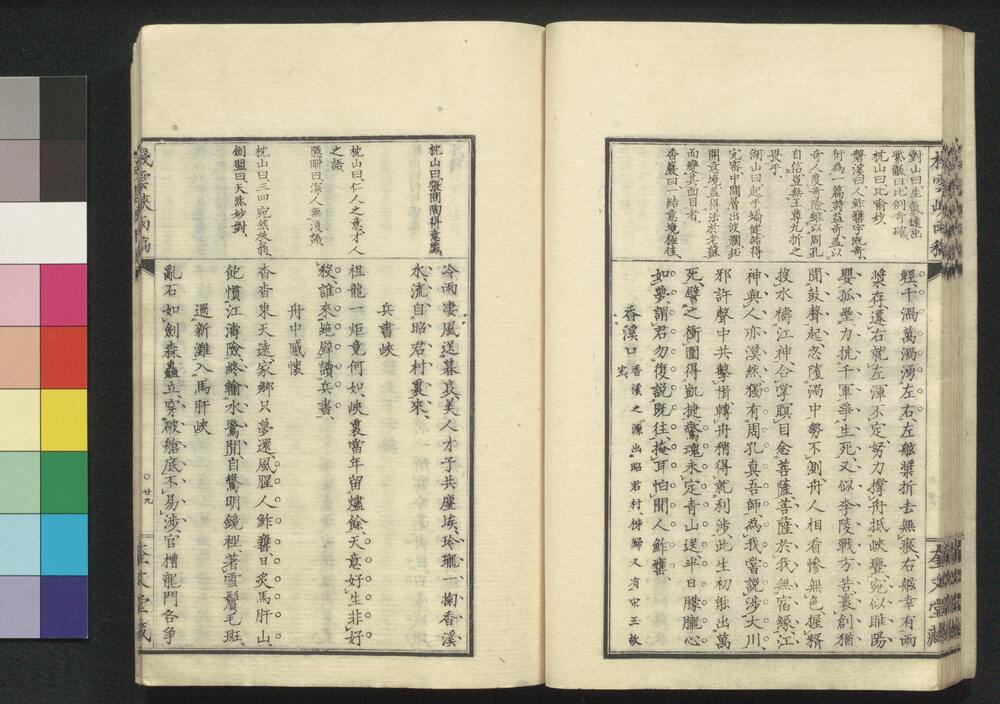 對山曰生氣遠出
紫巖曰比例奇確
枕山曰比喻妙
磐溪曰人鮓甕字既奇
何為一篇詩益奇蓋以
奇人度奇險雖以周孔
自信豈無王尊九折之
畏乎
湖山曰起手矯健結得
完密中間層出波瀾拓
開意境蓋得法於老蘇
而變其面目者
香巖曰一結意境極佳
輕千渦萬渦湧左右左艤槳折去無痕右艤幸有兩
槳存還右就左渾不定努力撐舟抵峽壁宛似睢陽
嬰孤壘力抗千軍爭生死又似李陵戰方苦裹創猶
聞鼓聲起忽墮渦中勢不測舟人相看慘無色握糈
投水禱江神合掌瞑目念菩薩菩薩於我無宿緣江
神與人亦漠然獨有周孔真吾師為我嘗說涉大川
邪許聲中共擊楫轉舟稍得就利涉此生初能出萬
死譬之衝圍得凱捷驚魂未定青山送半日朦朧心
如夢謂君勿復說既往掩耳怕聞人鮓甕
香溪口
香溪之源出昭君村秭歸又有宋玉故
宅
枕山曰張問陶得意處
枕山曰仁人之意才人
之語
枕山曰三四宛然放翁
劍盟曰天然妙對
冷雨淒風送暮哀美人才子共塵埃玲瓏一掬香溪
水流自昭君村裏來
兵書峽
祖龍一炬竟何如峽裏當年留爐餘天意好生非好
殺誰來絕壁讀兵書
舟中感懷
杳杳東天遠家鄉只夢還風腥人鮓甕日炙馬肝山
飽慣江濤險終輸水驚閒自驚明鏡裡著雪鬢毛斑
過新灘入馬肝峽
亂石如劍森矗立穿破艙底不易涉官槽龍門各爭
棧雲峽雨稿
廿九
奎文堂藏